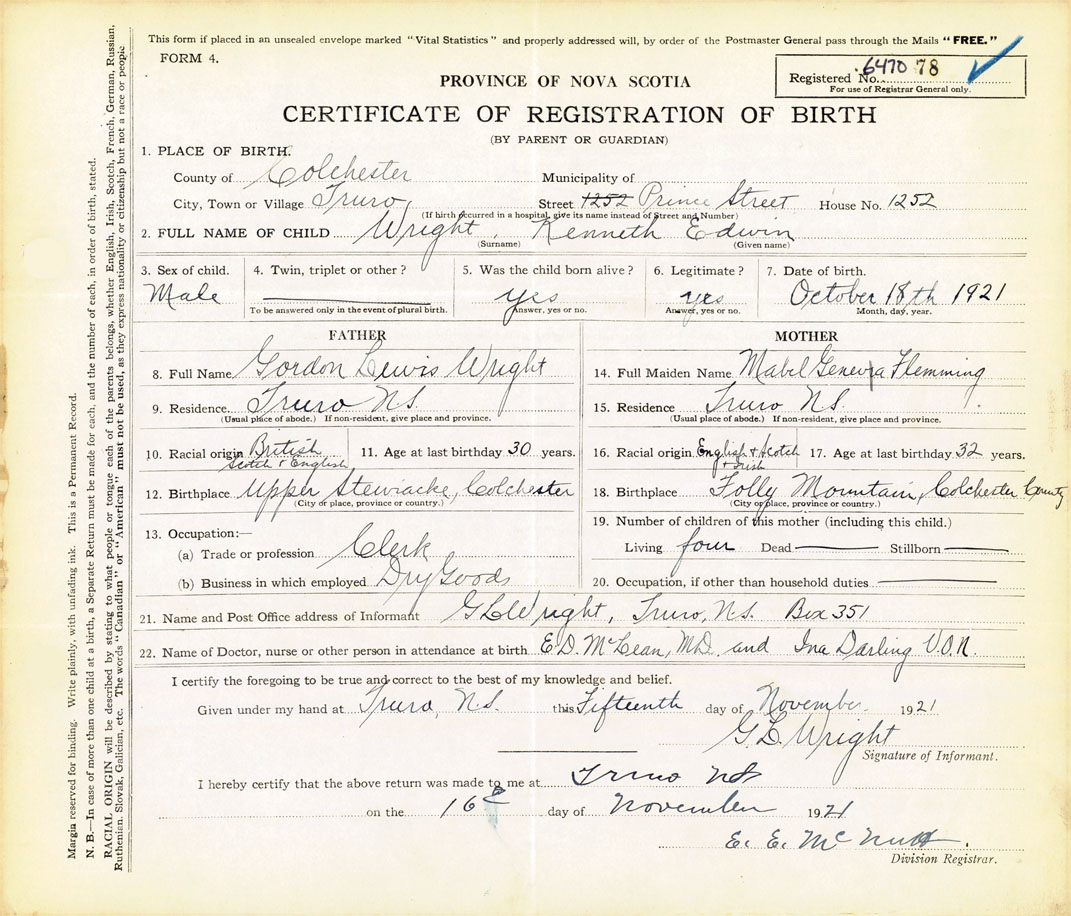 This form if placed in an unsealed envelope marked "Vital Statistics" and properly addressed will, by order of the Postmaster General pass through the Mails "FREE."
FORM 4.
Registered No. 6470 78
For use of Registrar General only.
PROVINCE OF NOVA SCOTIA
CERTIFICATE OF REGISTRATION OF BIRTH
(BY PARENT OR GUARDIAN)
1. PLACE OF BIRTH.
County of Colchester Municipality of
City, Town or Village Truro Street 1252 Prince Street House No. 1252
(If birth occurred in a hospital, give its name instead of Street and Number)
2. FULL NAME OF CHILD Wright, Kenneth Edwin
(Surname) (Given name)
3. Sex of child. 4. Twin, triplet or other? 5. Was the child born alive? 6. Legitimate? 7. Date of birth.
Male yes yes October 18th 1921
To be answered only in the event of plural birth. Answer, yes or no. Answer, yes or no. Month, day, year.
FATHER
8. Full Name Gordon Lewis Wright
9. Residence. Truro N.S.
(Usual place of abode.) If non-resident, give place and province.
10. Racial origin British 11. Age at last birthday 30 years.
Scotch & English
12. Birthplace Upper Stewiacke, Colchester
(City or place, province or country.)
13. Occupation:—
(a) Trade or profession Clerk
(b) Business in which employed Dry Goods
MOTHER
14. Full Maiden Name Mabel Geneva Flemming
15. Residence Truro N.S.
(Usual place of abode.) If non-resident, give place and province.
16. Racial origin English & Scotch 17. Age at last birthday 32 years.
& Irish
18. Birthplace Folly Mountain, Colchester County
(City or place, province or country.)
19. Number of children of this mother (including this child.)
Living four Dead Stillborn
20. Occupation, if other than household duties
21. Name and Post Office address of Informant G L Wright, Truro, N.S. Box 351
22. Name of Doctor, nurse or other person in attendance at birth E.D. McLean, M.D. and Ina Darling V.O.N.
I certify the foregoing to be true and correct to the best of my knowledge and belief.
Given under my hand at Truro, N.S. this Fifteenth day of November 1921
G. L. Wright
Signature of Informant.
I hereby certify that the above return was made to me at Truro NS
on the 16th day of November 1921
E. E. McNutt
Division Registrar.
Margia reserved for binding. Write plainly, with unfading ink. This is a Permanent Record.
N. B.—In case of more than one child at a birth, a Separate Return must be made for each, and the number of each, in order of birth, stated.
RACIAL ORIGIN will be described by stating to what people or tongue each of the parents belongs, whether English, Irish, Scotch, French, German, Russian,
Ruthenian, Slovak, Galician, etc. The words "Canadian" or "American" must not be used, as they express nationality or citizenship but not a race or people